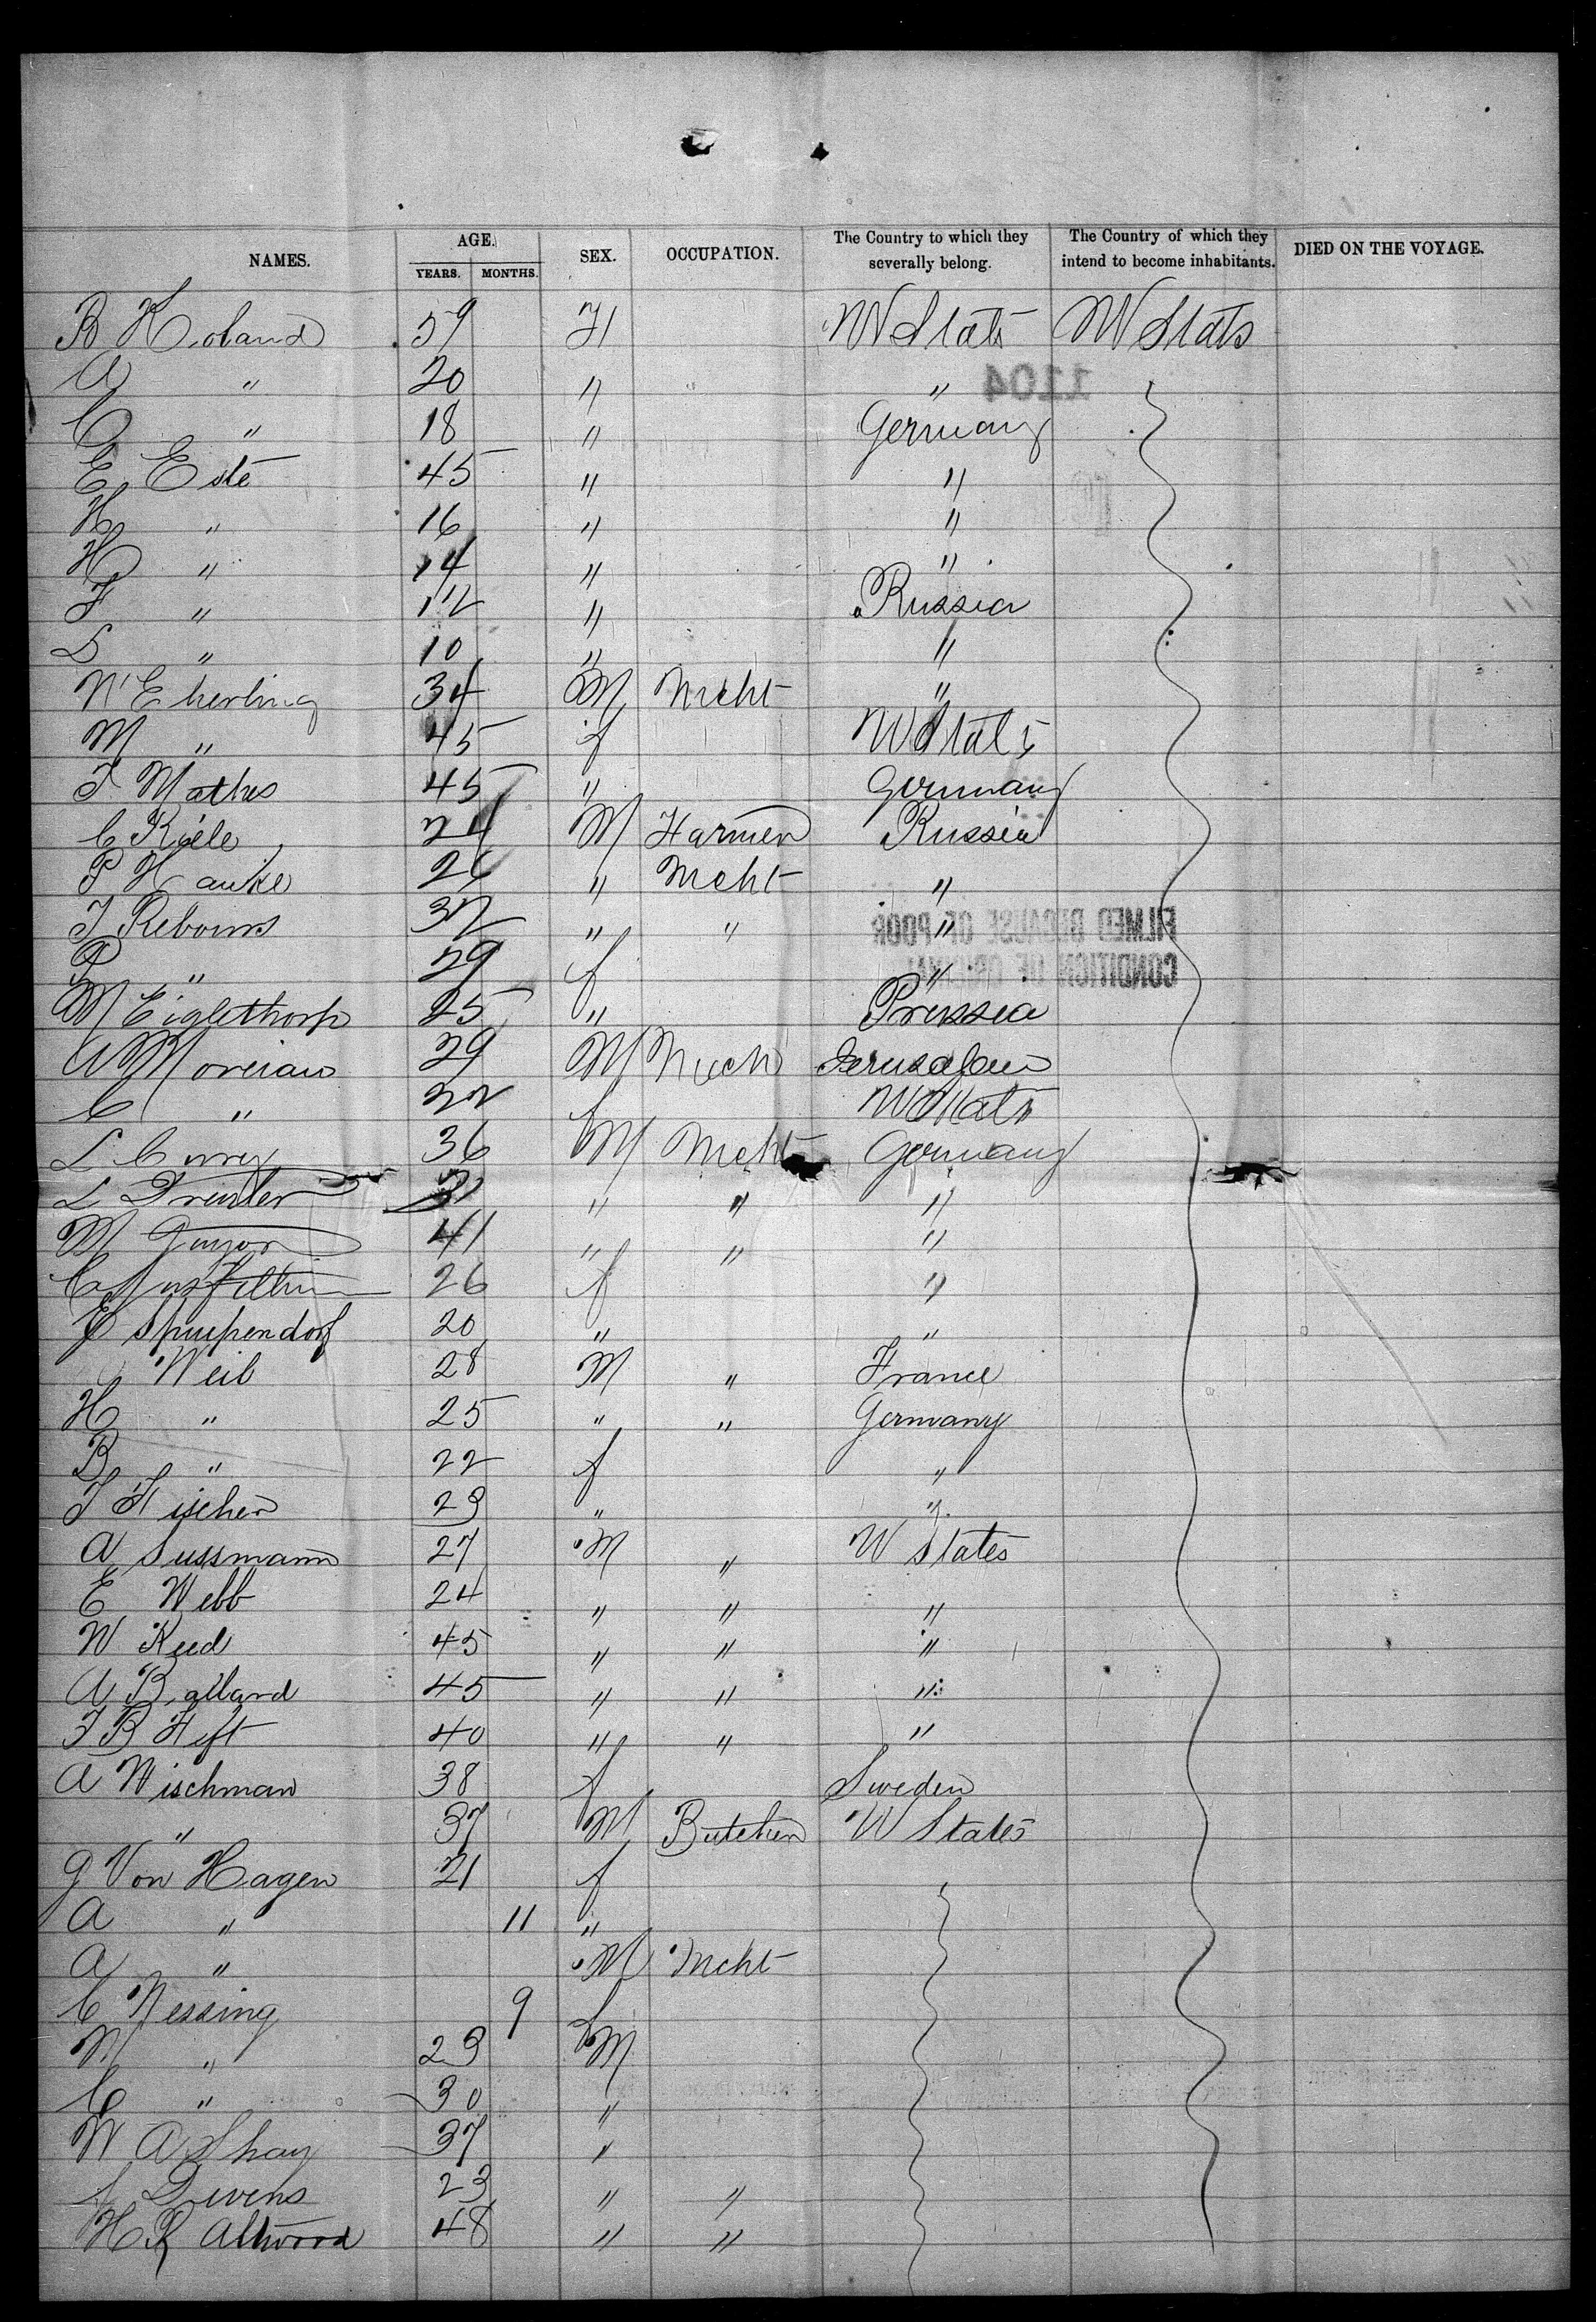 NAMES. AGE. SEX. OCCUPATION. The Country to which they severally belong. The Country of which they intend to become inhabitants. DIED ON THE VOYAGE.
YEARS. MONTHS.
B 59 W States W States
A " 20 " "
C " 18 " Germany
E Este 45 " "
H " 16 " "
H " 14 " "
F " 12 " Russia
L " 10 " "
34 M Mcht "
M " 45 f W States
F Mathes 45 " Germany
C Riele 24 M Farmer Russia
P Hauke 26 " Mcht "
32 " " "
P " 29 f "
M Eiglethorp 25 " Prussia
A 29 M Jerusalem
C " 22 f W States
L Curry 36 M Mcht Germany
L 31 " " "
M Guyon 41 " " "
26 f "
E 20 " "
Weil 28 M " France
H " 25 " " Germany
B " 22 f "
F Fischer 23 " "
A Sussmann 27 M " W States
E Webb 24 " " "
W Reed 45 " " "
A Ballard 45 " " "
F B Heft 40 " " "
A Wischman 38 f Sweden
" 37 M Butcher W States
G Von Hagen 21 f
A " 11 "
A " M Mcht
C Nessing 9 f
M " 23 M
C " 30 "
W A Shay 37 "
Divens 23 " "
H R Attwood 48 " "
1104
FILMED BECAUSE OF POOR
CONDITION OF ORIGINAL